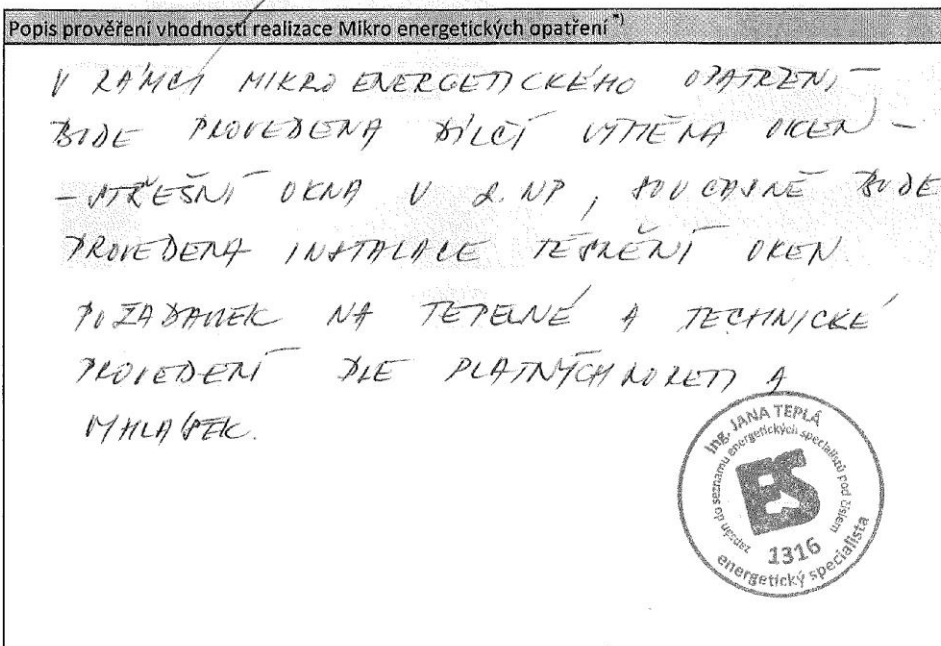 Popis prověření vhodnosti realizace Mikro energetických opatření *)
V RÁMCI MIKRO ENERGETICKÉHO OPATŘENÍ
BUDE PROVEDENA DÍLČÍ VÝMĚNA OKEN -
- STŘEŠNÍ OKNA V 2. NP, SOUČASNĚ BUDE
PROVEDENA INSTALACE TĚSNĚNÍ OKEN.
POŽADAVEK NA TEPELNÉ A TECHNICKÉ
PROVEDENÍ DLE PLATNÝCH NOREM A
VYHLÁŠEK.
Ing. JANA TEPLÁ
zapsán do seznamu energetických specialistů pod číslem
ES
1316
energetický specialista